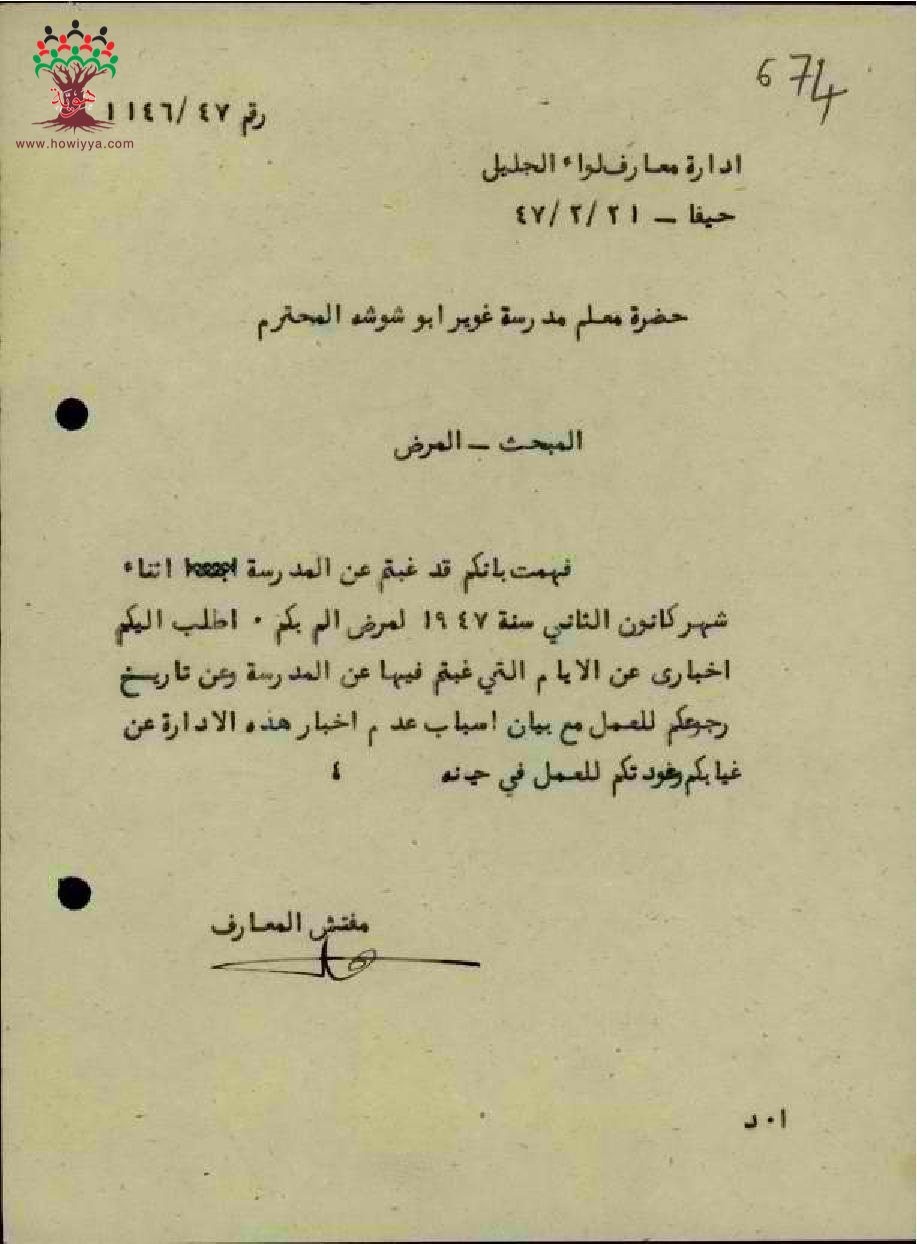 هوية
www.howiyya.com
674
رقم ٤٧/ ١١٤٦
ادارة معارف لواء الجليل
حيفا – ٤٧/٢/٢١
حضرة معلم مدرسة غوير ابو شوشه المحترم
المبحث – المرض
فهمت بانكم قد غبتم عن المدرسة اثناء
شهر كانون الثاني سنة ١٩٤٧ لمرض الم بكم ٠ اطلب اليكم
اخبارى عن الايام التي غبتم فيها عن المدرسة وعن تاريخ
رجوعكم للعمل مع بيان اسباب عدم اخبار هذه الادارة عن
غيابكم وعودتكم للعمل في حينه ٤
مفتش المعارف
ا ٠ د